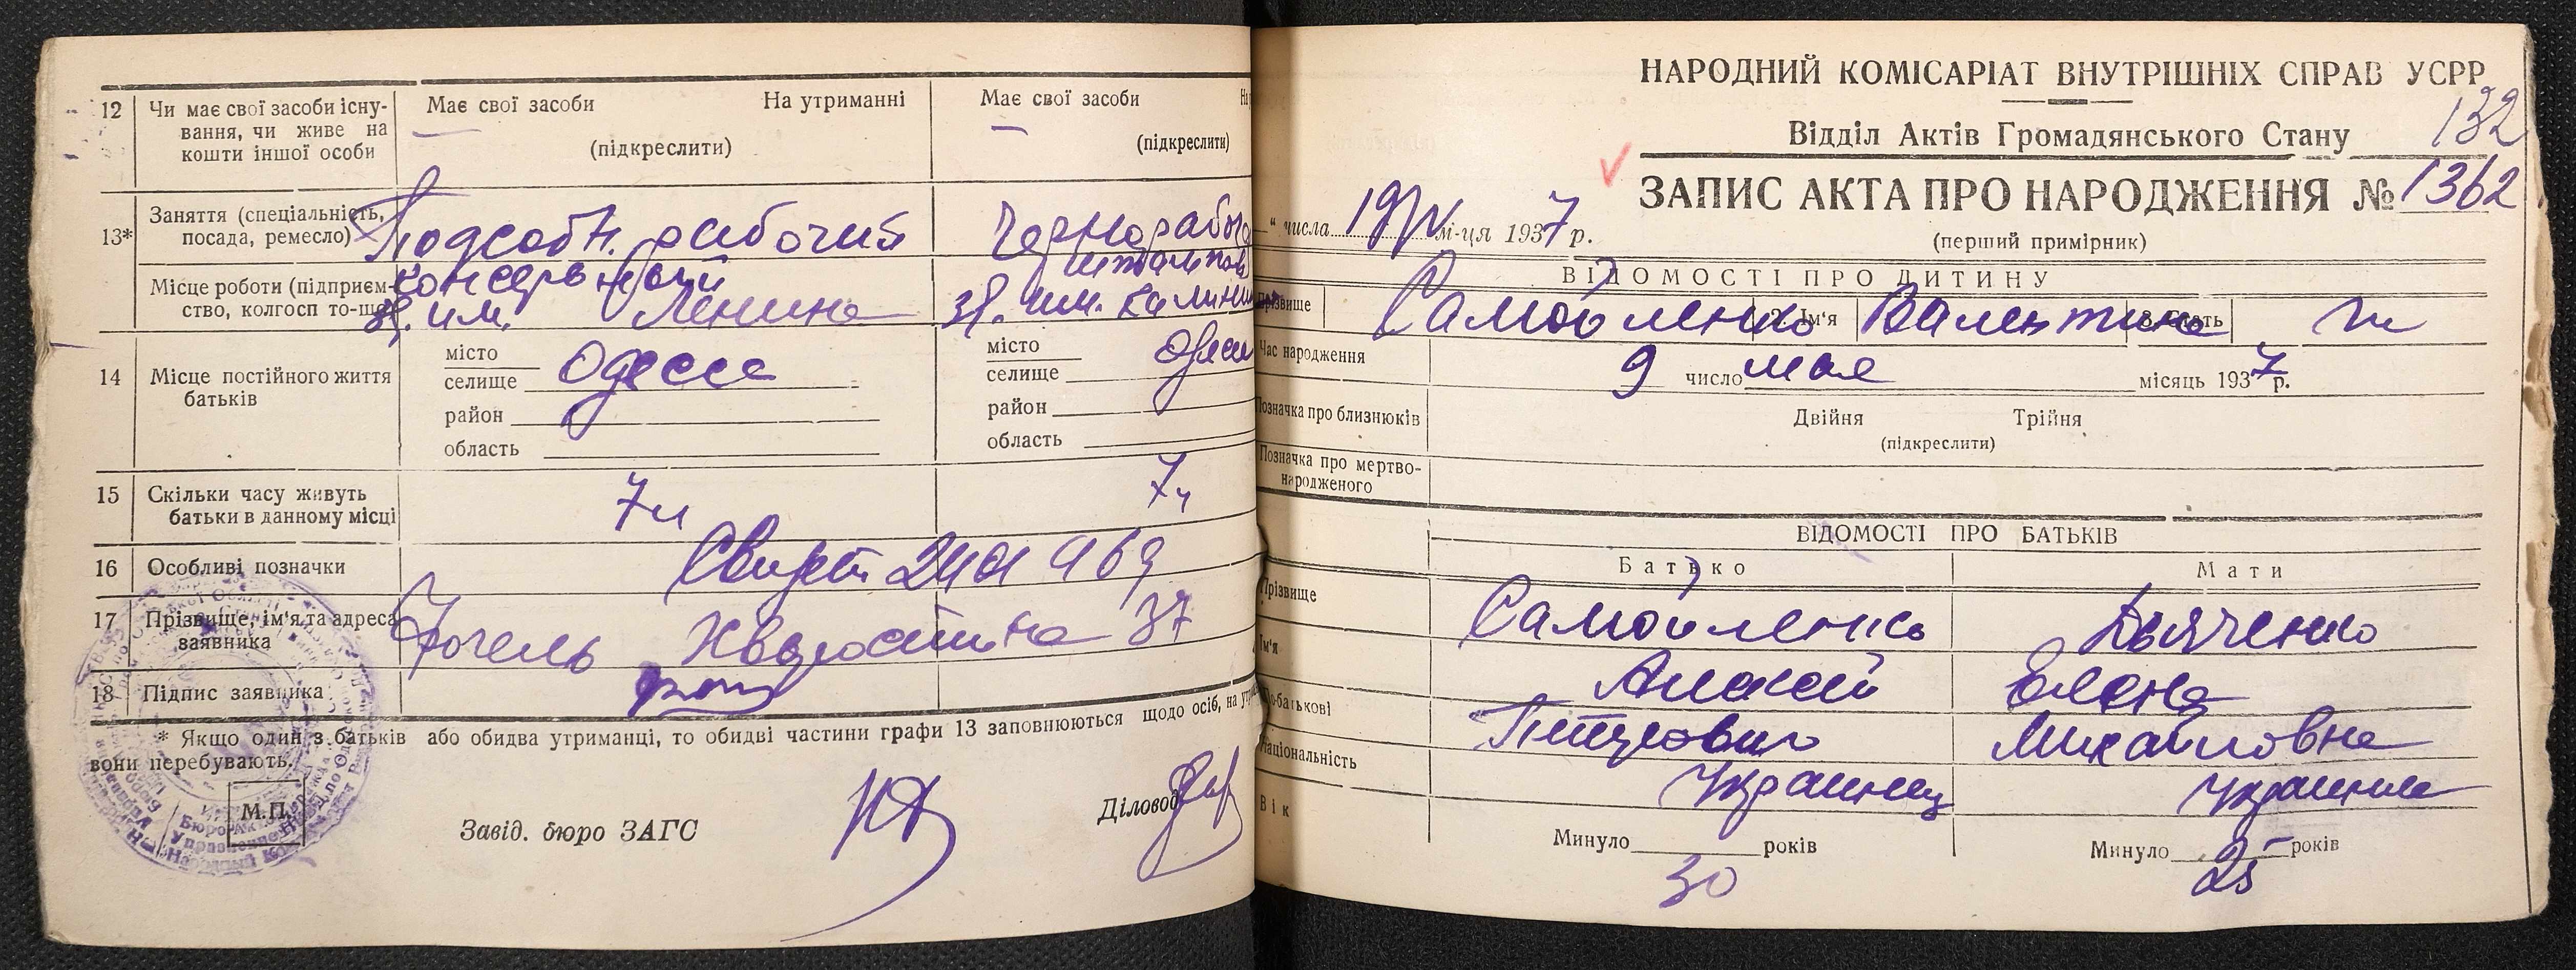 12 Чи має свої засоби існу-
вання, чи живе на
кошти іншої особи
Має свої засоби На утриманні
(підкреслити)
Має свої засоби
(підкреслити)
13* Заняття (спеціальність,
посада, ремесло)
Подсобн. рабочий
Місце роботи (підприєм-
ство, колгосп то-що
Консервный
зд. им. Ленина
зд. им. Калинин
14 Місце постійного життя
батьків
місто
селище Одесса
район
область
місто
селище
район
область
15 Скільки часу живуть
батьки в данному місці
7 л
16 Особливі позначки
17 Прізвище, ім'я та адреса
заявника
37
18 Підпис заявника
* Якщо один з батьків або обидва утриманці, то обидві частини графи 13 заповнюються щодо осіб, на
вони перебувають.
М.П.
Завід. бюро ЗАГС
Діловод
НАРОДНИЙ КОМІСАРІАТ ВНУТРІШНІХ СПРАВ УСРР
132
Відділ Актів Громадянського Стану
ЗАПИС АКТА ПРО НАРОДЖЕННЯ № 1362
(перший примірник)
" числа 19/V м-ця 1937 р.
ВІДОМОСТІ ПРО ДИТИНУ
Прізвище Самойленко 2. Ім'я Валентина 3. Стать
Час народження 9 число мая місяць 1937 р.
Позначка про близнюків
Двійня Трійня
(підкреслити)
Позначка про мертво-
народженого
ВІДОМОСТІ ПРО БАТЬКІВ
Батько Мати
Прізвище Самойленко Дьяченко
Ім'я Алексей Елена
По-батькові Петрович Михайловна
Національність Украинец Украинка
Вік
Минуло 30 років
Минуло 25 років